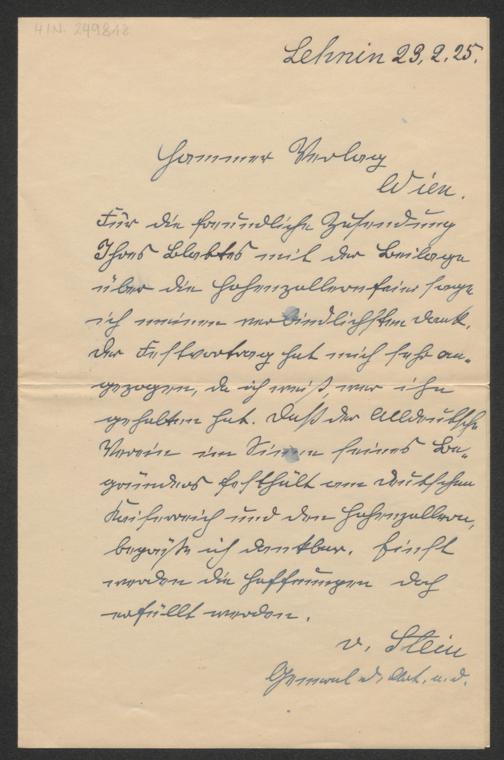 H.I.N. 249818
Lehnin 23.2.25.
Hammer Verlag
Wien.
Für die freundliche Zusendung
Ihres Blattes mit der Beilage
über die Hohenzollernfeier sage
ich meinen verbindlichsten Dank.
Der Festvortrag hat mich sehr an-
gezogen, da ich weiß, wer ihn
gehalten hat. Daß der Alldeutsche
Verein im Sinne seines Be-
gründers festhält am deutschen
Kaiserreich und den Hohenzollern,
begrüße ich dankbar. Einst
werden die Hoffnungen doch
erfüllt werden.
v. Stein
General d. Art. a. D.